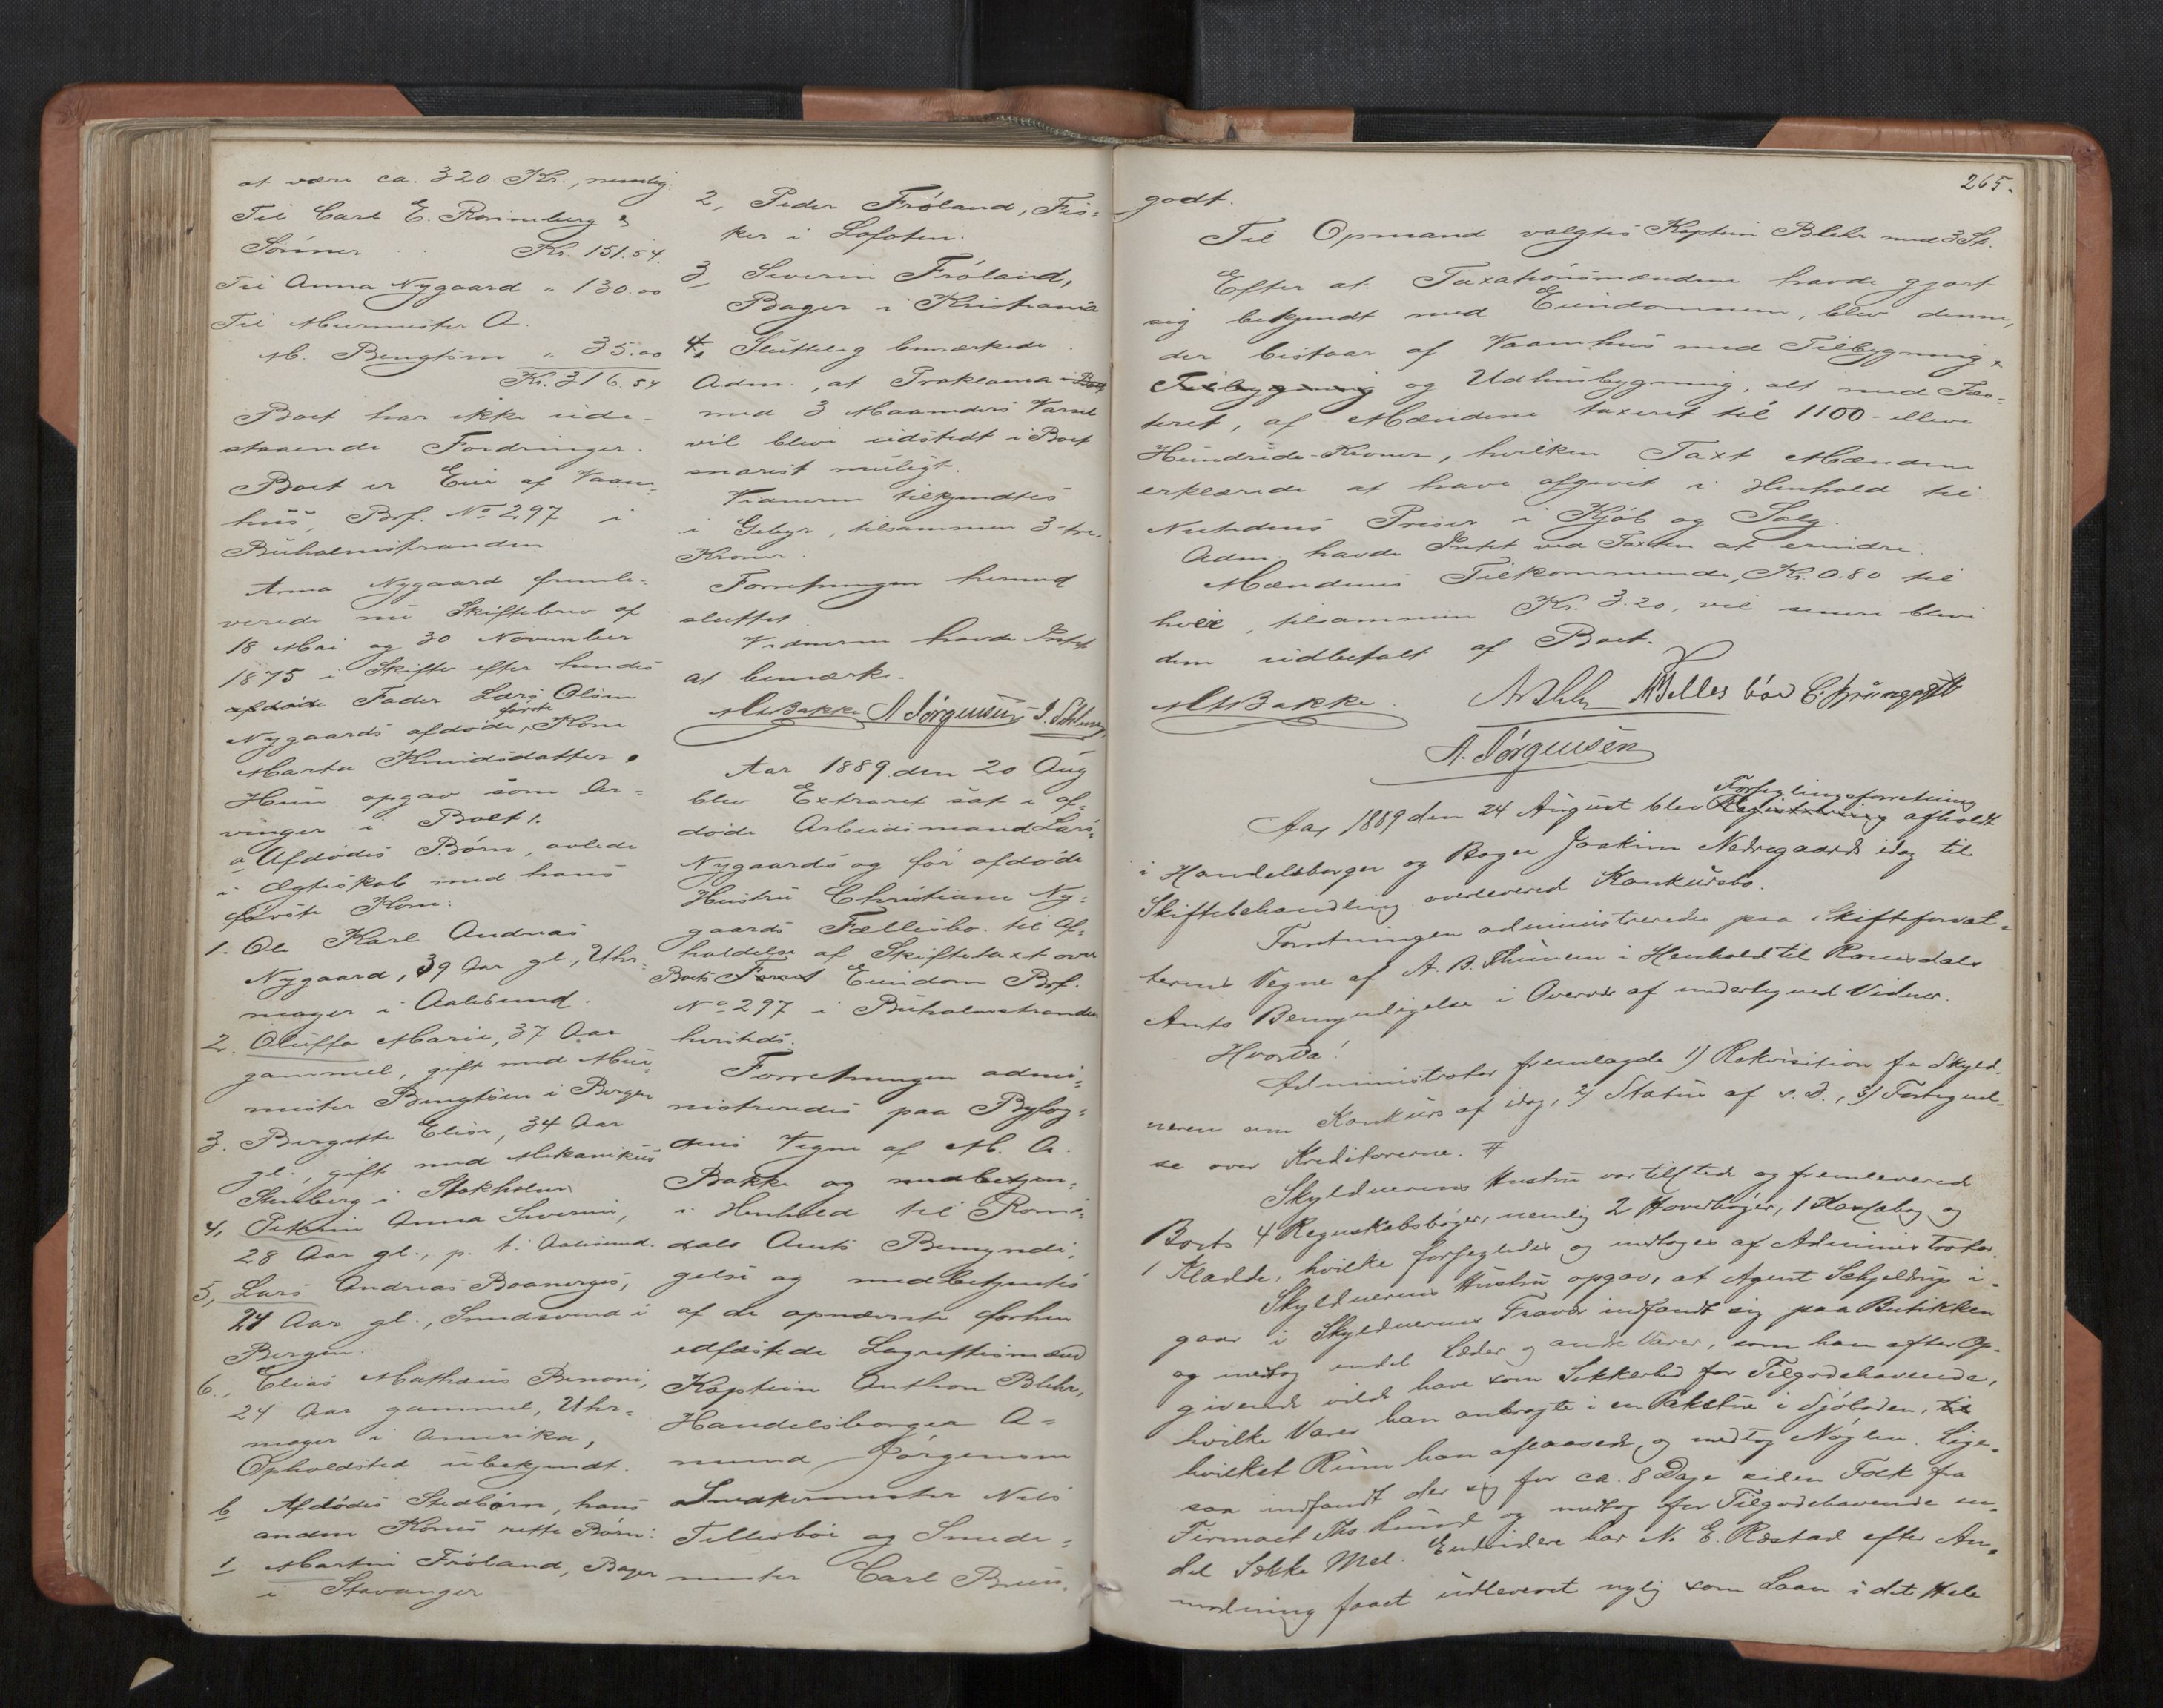 at være ca. 320 Kr., nemlig:
Til Carl E. Rønneberg &
Sønner Kr. 151.54.
Til Anna Nygaard " 130.00
Til Murmester A.
M. Bengtson " 35.00
Kr. 316.54
Boet har ikke ude-
staaende Fordringer.
Boet er Eier af Vaan-
hus, Brf. No 297 i
Buholmstranden
Anna Nygaard fremle-
verede nu Skiftebrev af
18 Mai og 30 November
1875 i Skifte efter hendes
afdøde Fader Lars Olsen
Nygaards afdøde første Kone
Marta Knudsdatter.
Hun opgav som Ar-
vinger i Boet:
a Afdødes Børn, avlede
i Ægteskab med hans
første Kone:
1. Ole Karl Andreas
Nygaard, 39 Aar gl., Uhr-
mager i Aalesund.
2. Oluffa Marie, 37 Aar
gammel, gift med Mur-
mester Bengtson i Bergen
3. Birgitte Elise, 34 Aar
gl., gift med Mekanikus
Stenberg i Stokholm
4, Petrine Anna Severine,
28 Aar gl., p. t. Aalesund.
5, Lars Andreas Boanerges,
27 Aar gl., Smedsvend i
Bergen.
6., Elias Mathæus Benoni,
24 Aar gammel, Uhr-
mager i Amerika,
Opholdsted ubekjendt.
b Afdødes Stedbørn, hans
anden Kones rette Børn:
1 Martin Frøland, Bager
i Stavanger
2, Peder Frøland, Fis-
ker i Lofoten.
3, Severin Frøland,
Bager i Kristiania
4, Sluttelig bemærkede
Adm., at Proklama i Boet
med 3 Maaneders Varsel
vil blive udstedt i Boet
snarest muligt.
Vidnerne tilkjendtes
i Gebyr, tilsammen 3-tre
Kroner.
Forretningen hermed
sluttet
Vidnerne havde Intet
at bemærke.
MABakke A Jørgensen
Aar 1889 den 20 Aug
blev Extraret sat i af-
døde Arbeidsmand Lars
Nygaards og før afdøde
Hustru Christiane Ny-
gaards Fællesbo til Af-
holdelse af Skiftetaxt over
Boets Eiendom Brf.
No 297 i Buholmstranden
hersteds.
Forretningen admi-
nistreredes paa Byfog-
dens Vegne af M. A.
Bakke og medbetjen-
i Henhold til Roms-
dals Amts Bemyndi-
gelse og medbetjentes
af de opnævnte forhen
edfæstede Lagrettesmænd
Kaptein Anthon Blehr,
Handelsborger A-
mund Jørgensen
Snedkermester Nils
Tellesbøe og Smede-
mester Carl Bruun-
265.
godt.
Til Opmand valgtes Kaptein Blehr med 3 St.
Efter at Taxationsmændene havde gjort
sig bekjendt med Eiendommen, blev denne,
der bestaar af Vaanhus med Tilbygning
Tilbygning og Udhusbygning, alt med Fæs-
teret, af Mændene taxeret til 1100 - elleve
Hundrede - Kroner, hvilken Taxt Mændene
erklærede at have afgivet i Henhold til
Nutidens Priser i Kjøb og Salg.
Adm. havde Intet ved Taxten at erindre.
Mændenes Tilkommende, Kr. 0.80 til
hver, tilsammen Kr. 3.20, vil senere blive
dem udbetalt af Boet.
MABakke. ABlehr NTellesbøe C. Bruungodt
A. Jørgensen
Aar 1889 den 24 August blev Registrering Forseglingsforretning afholdt
i Handelsborger og Bager Joakim Nedregaards idag til
Skiftebehandling overleverede Konkursbo.
Forretningen administreredes paa Skifteforval-
terens Vegne af A. B. Thunem i Henhold til Romsdals
Amts Bemyndigelse i Overvær af undertegnede Vidner.
Hvorda!
Administrator fremlagde 1) Rekvisition fra Skyld-
neren om Konkurs af idag, 2) Status af s. D., 3) Fortegnel-
se over Kreditorerne. #
Skyldnerens Hustru var tilstede og fremleverede
Boets 4 Regnskabsbøger, nemlig 2 Hovedbøger, 1 Kassabog og
1 Kladde, hvilke forsegledes og medtoges af Administrator.
Skyldnerens Hustru opgav, at Agent Schjeldrup i-
gaar i Skyldnerens Fravær indfandt sig paa Butikken
og medtog endel Læder og andre Varer, som han efter Op-
givende vilde have som Sikkerhed for Tilgodehavende,
hvilke Varer han anbragte i en Pakstue i Sjøboden, til
hvilket Rum han aflaasede og medtog Nøglen. Lige-
saa indfandt der sig for ca. 8 Dage siden Folk fra
Firmaet Ths. Lund og medtog for Tilgodehavende en-
del Sække Mel. Endvidere har N. E. Ræstad efter An-
modning faaet udleveret nylig som Laan i det Hele